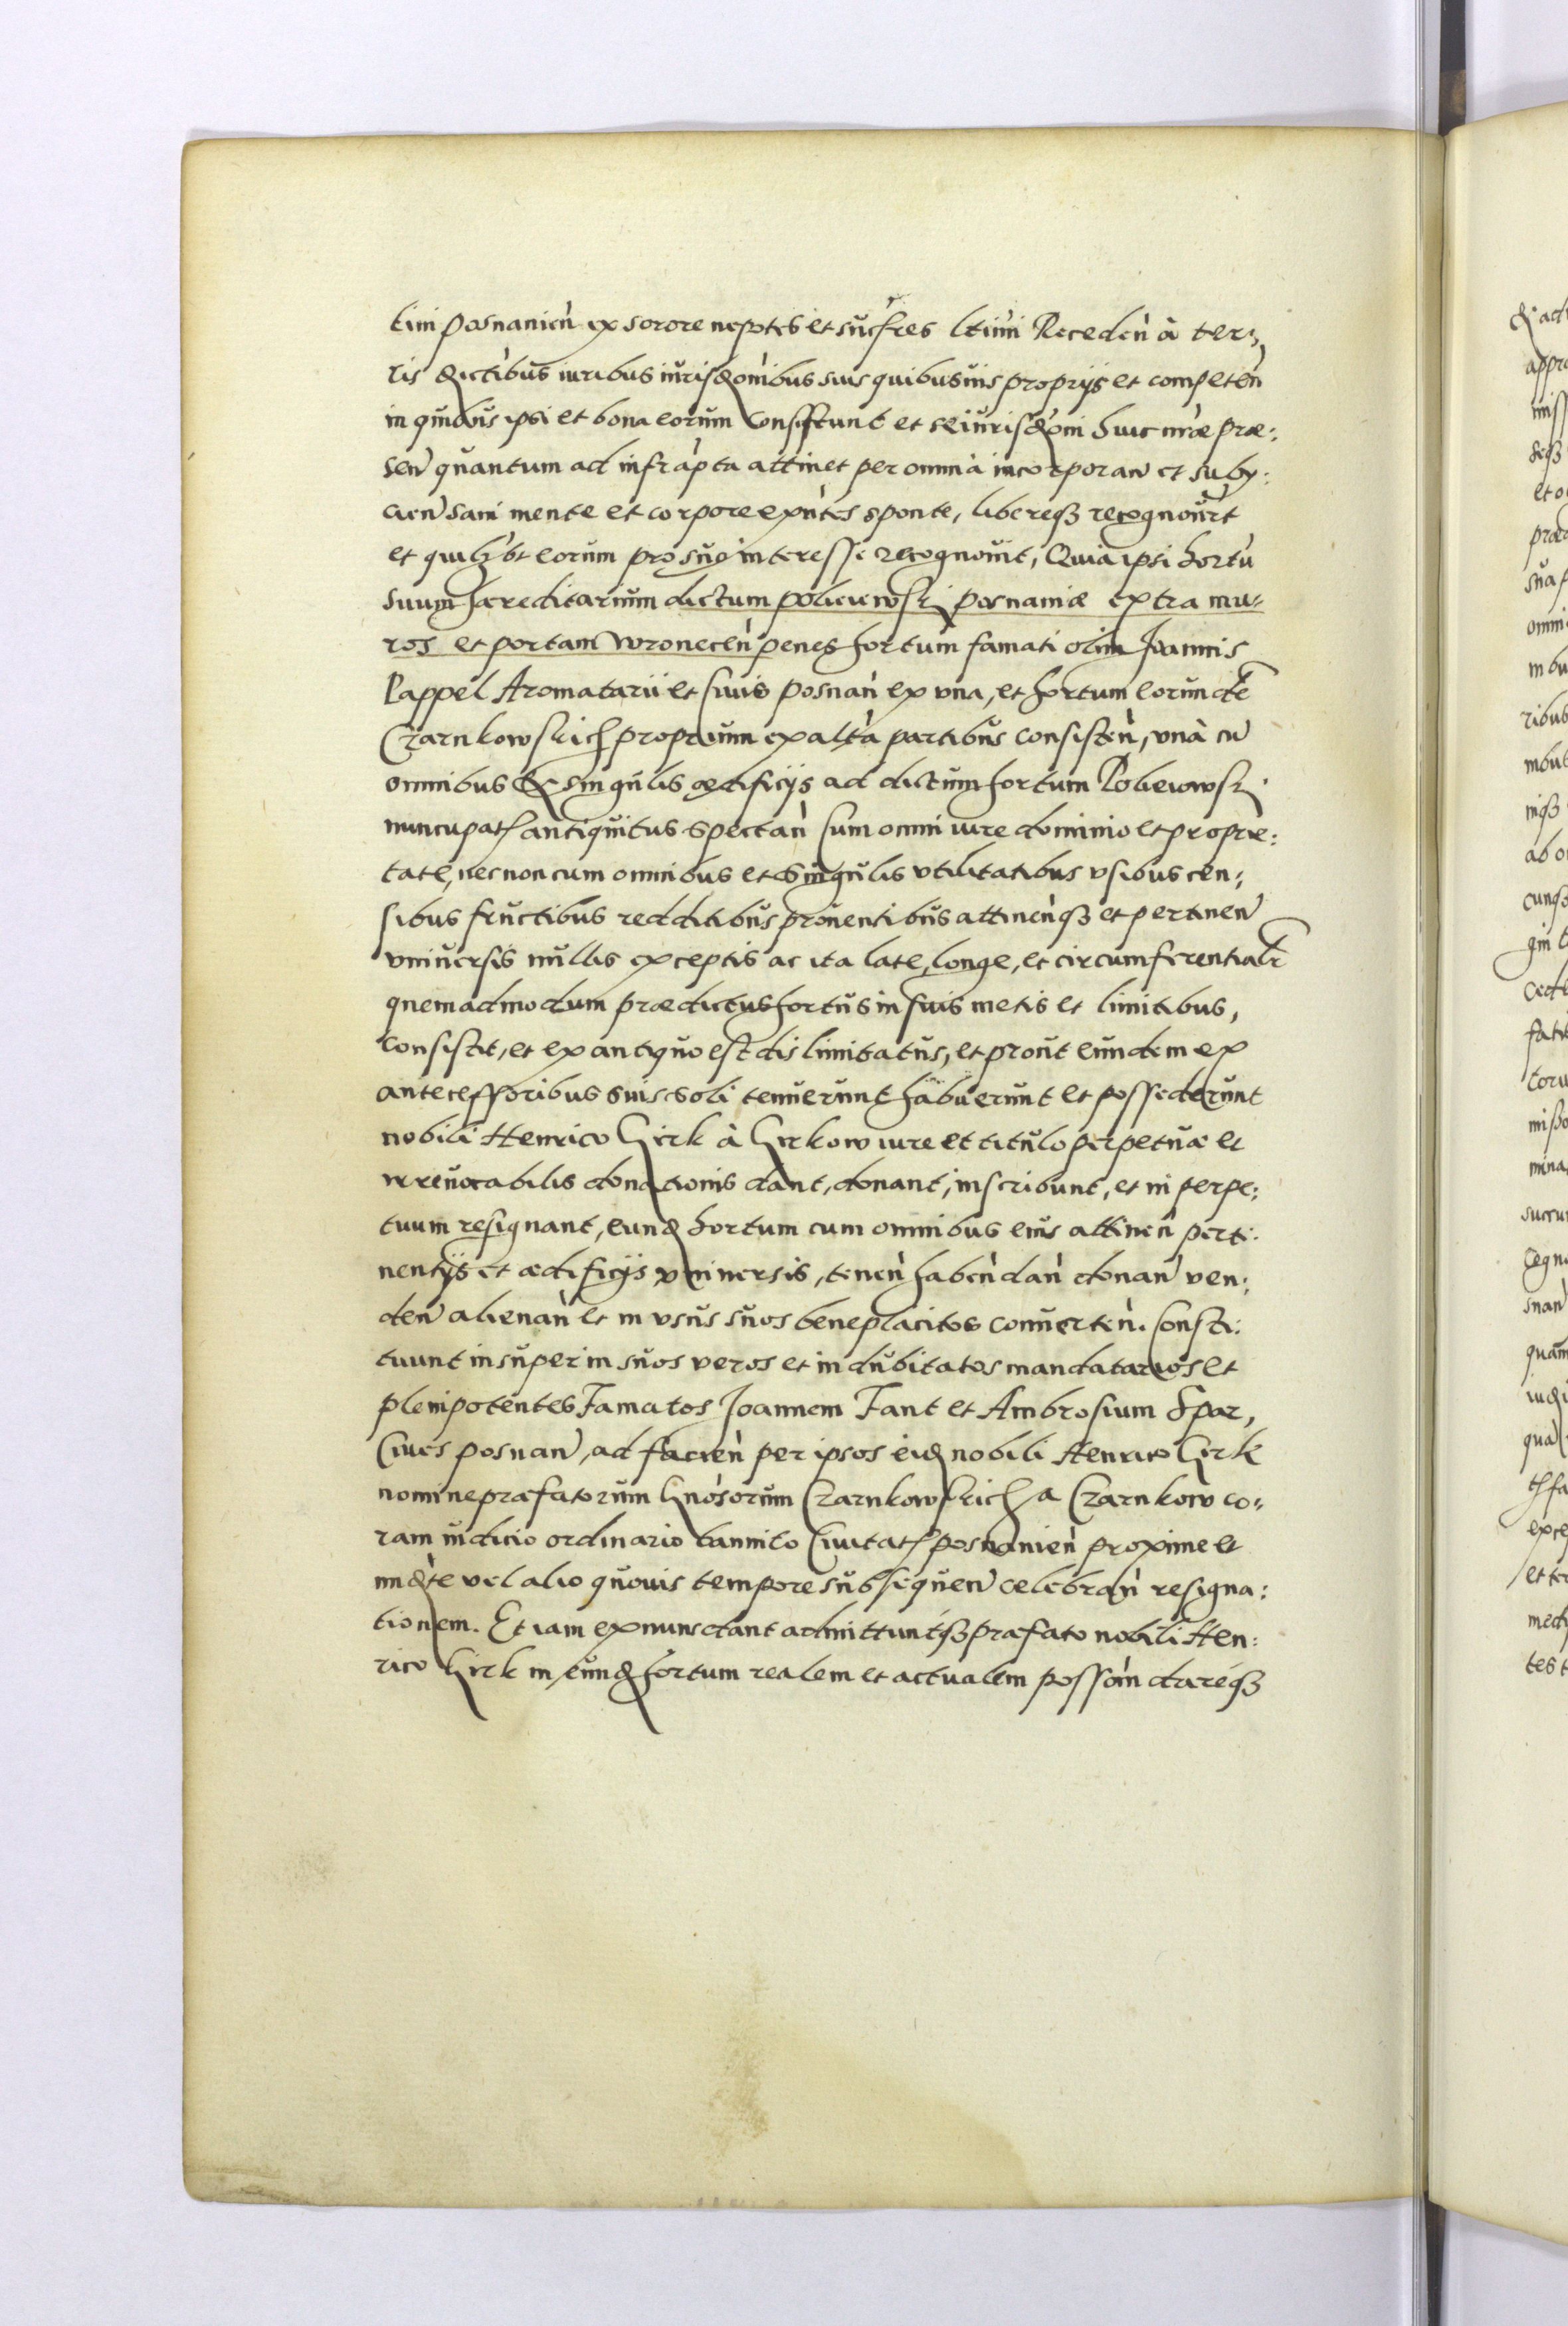 tini Posnanien̄ ex sorore nepotes et succ̄res l̄timi Receden̄ à ter-
ris d̄ictibus iuribus iurisd̄onibus suis quibusuis proprijs et competen̄
in quibus ipsi et bona eorum consistunt et se iurisd̄oni huic n̄ræ præ:
sen̄ quantum ad infrap̄ta attinet per omnia incorporan̄ et subij:
cien̄ sani mente et corpore exn̄tes sponte, libereqꝫ recognoūrt
et quil̄bt eorum pro suo interesse recognouit, Quia ipsi hortū
suum hæreditarium dictum Poliewski Posnaniæ extra mu-
ros et portam Wronecen̄ penes hortum famati olim Joannis
Pappel Aromatarii et Ciuis Posnan̄ ex vna, et hortum eorundē
Czarnkowskich proprium ex alt̄a partibus consisten̄, vnà cū
omnibus & singulis ædificijs ad dictum hortum Poliewwski
nuncupatꝭ antiquitus spectan̄ cum omni iure dominio et proprie:
tate, nec non cum omnibus et singulis vtilitatibus vsibus cen-
sibus fructibus redditibus prouentibus attinen̄qꝫ et pertinen̄
vniuersis nullis exceptis ac ita late, longe, et circumferential̄r
quemadmodum prædictus hortus in suis metis et limitibus,
consistit, et ex antiquo est dislimitatus, et prout eundem ex
antecessoribus suis soli tenuerunt habuerunt et possederunt
nobili Henrico Girk à Girkow iure et titulo perpetuæ et
irreuocabilis donationis dant, donant, inscribunt, et in perpe:
tuum resignant, eund̄ hortum cum omnibus eius attinen̄ perti:
nentijs et ædificijs vniuersis, tenen̄ haben̄ dan̄ donan̄ ven:
den̄ alienan̄ et in vsus suos beneplacitos conuerten̄. Consti:
tuunt insuper in suos veros et indubitatos mandatarios et
plenipotentes Famatos Joannem Fant et Ambrosium Spar,
Ciues Posnan̄, ad facien̄ per ipsos eid̄ nobili Henrico Girk
nomine præfatorum Gn̄osorum Czarnkowskich a Czarnkow co-
ram iudicio ordinario bannito Ciuitatꝭ Posnanien̄ proxime et
im̄d̄te vel alio quouis tempore subsequen̄ celebran̄ resigna:
tionem. Et iam ex nunc dant admittuntqꝫ præfato nobili Hen:
rico Girk in eund̄ hortum realem et actualem possōin dareqꝫ